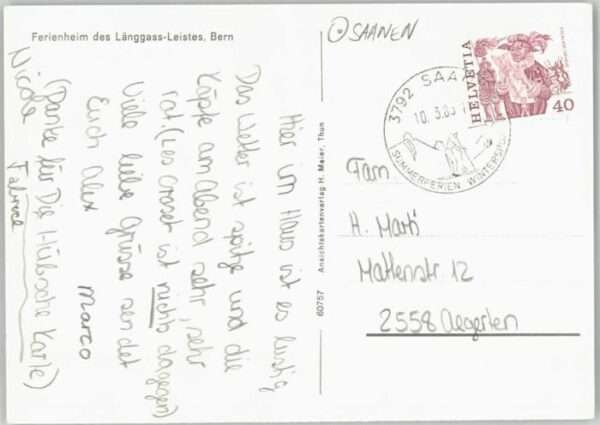 Ferienheim des Länggass-Leistes, Bern
SAANEN
3792 SAA
10.3.8
SOMMERFERIEN WINTERSPO
HELVETIA
40
Hier im Haus ist es lustig
Das Wetter ist spitze und die
Köpfe am Abend sehr, sehr
rot (Les Croset ist nichts dagegen)
Viele liebe Grüsse sendet
Euch Alex
Marco
(Danke für Die Hübsche Karte)
Nicole
Fabrice
60757 Ansichtskartenverlag H. Meier, Thun
Fam
H. Marti
Mattenstr 12
2558 Aegerten